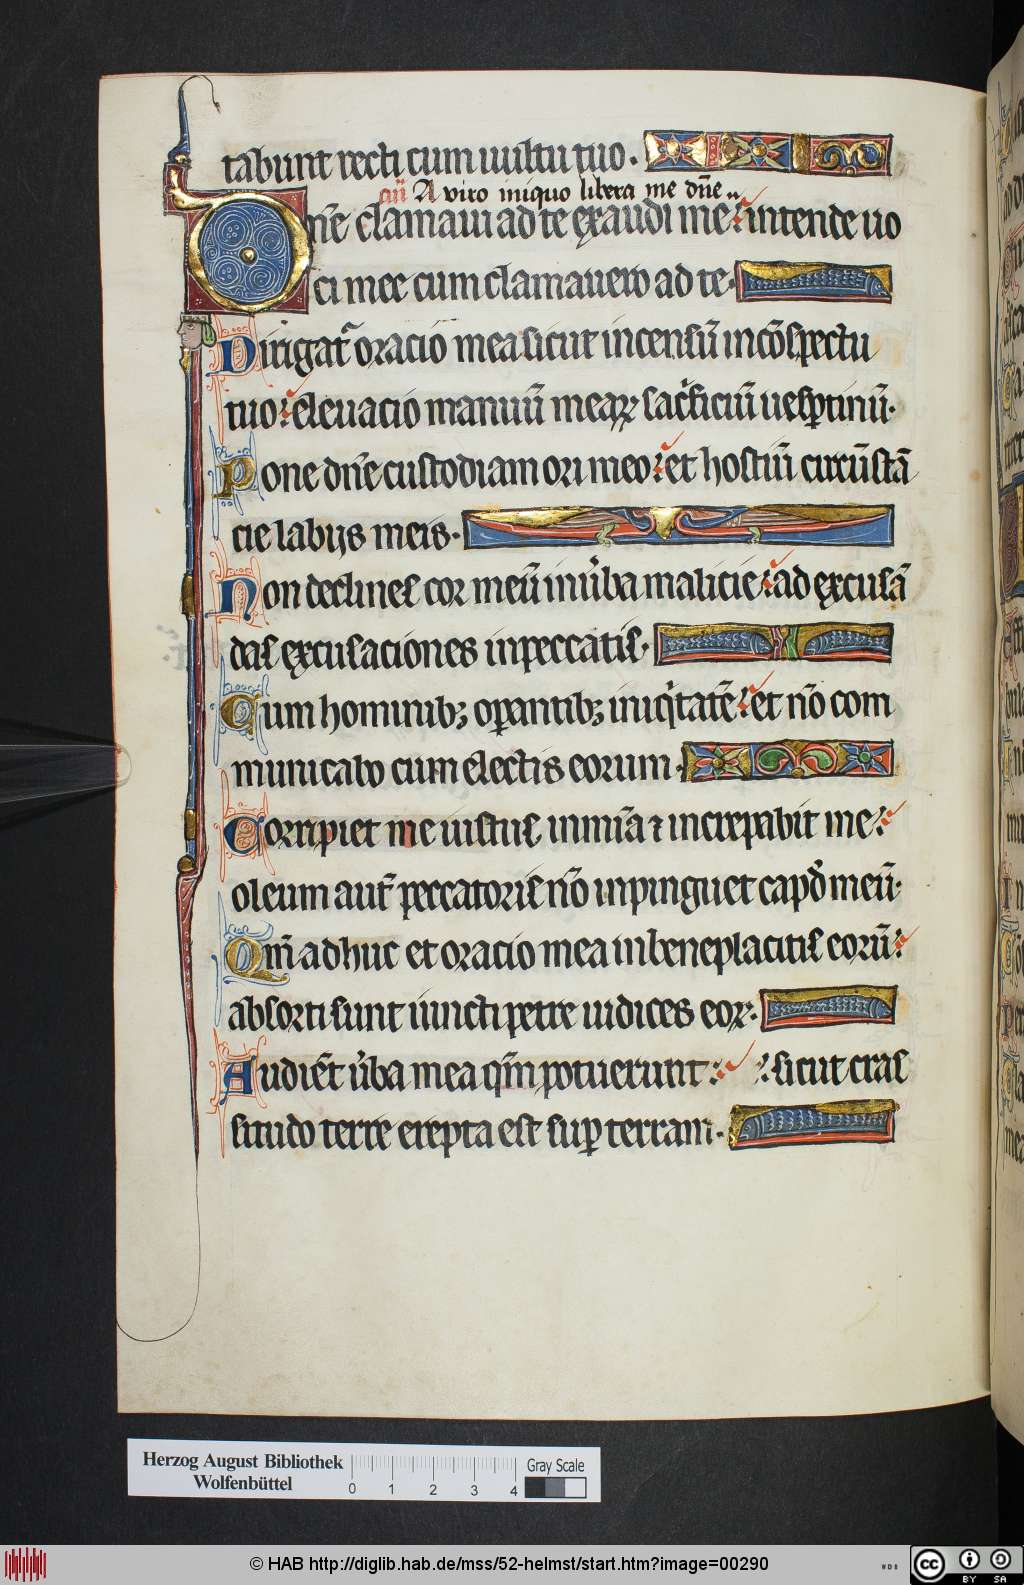 tabunt recti cum uultu tuo.
añ A viro iniquo libera me dñe
Dñe clamaui ad te exaudi me: intende uo
ci mee cum clamauero ad te.
Dirigat᷑ oracio mea sicut incensū in cōspectu
tuo: eleuacio manuū meaꝝ sac̍ficiū uesꝑtinū.
Pone dñe custodiam ori meo: et hostiū circūstā
cie labijs meis.
Non declines cor meū in u̾ba malicie: ad excusā
das excusaciones in peccatis.
Cum hominibꝫ oꝑantibꝫ iniq̍tatē: et nō com
municabo cum electis eorum.
Corripiet me iustus in mīa ⁊ increpabit me:
oleum aut̄ peccatoris nō inpinguet capđ meū.
Qm̄ adhuc et oracio mea in beneplacitis eorū:
absorti sunt iuncti petre iudices eoꝝ.
Audiēt u̾ba mea qm̄ potuerunt: sicut cras
situdo terre erepta est suꝑ terram.
Herzog August Bibliothek
Wolfenbüttel
0 1 2 3 4
Gray Scale
© HAB http://diglib.hab.de/mss/52-helmst/start.htm?image=00290
WDB
cc BY SA